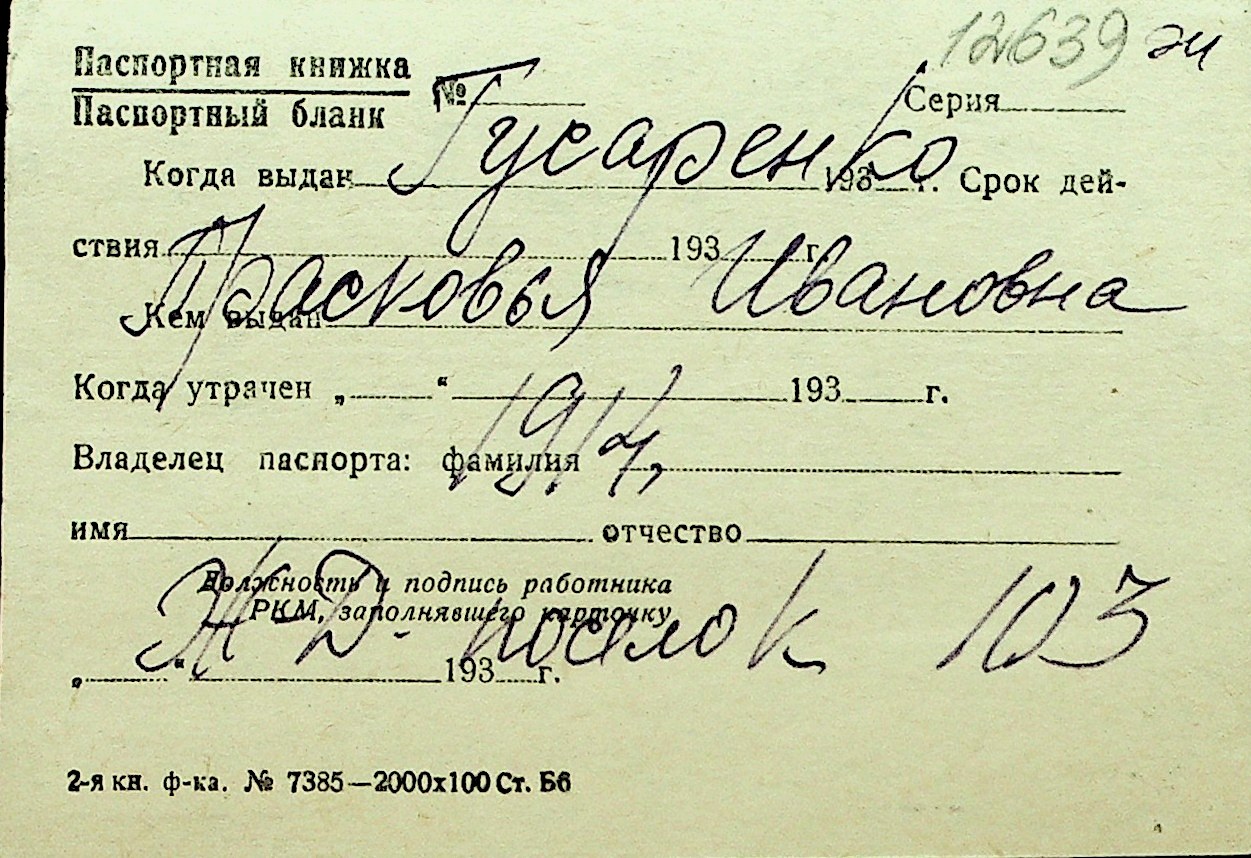 12639 эи
Паспортная книжка
Паспортный бланк № Серия
Гусаренко
Когда выдан 193 г. Срок дей-
ствия 193 г.
Прасковья Ивановна
Кем выдан
Когда утрачен „ “ 193 г.
1914,
Владелец паспорта: фамилия
имя отчество
Должность и подпись работника
РКМ, заполнявшего карточку
Ж-Д- поселок 103
„ “ 193 г.
2-я кн. ф-ка. № 7385—2000х100 Ст. Бб